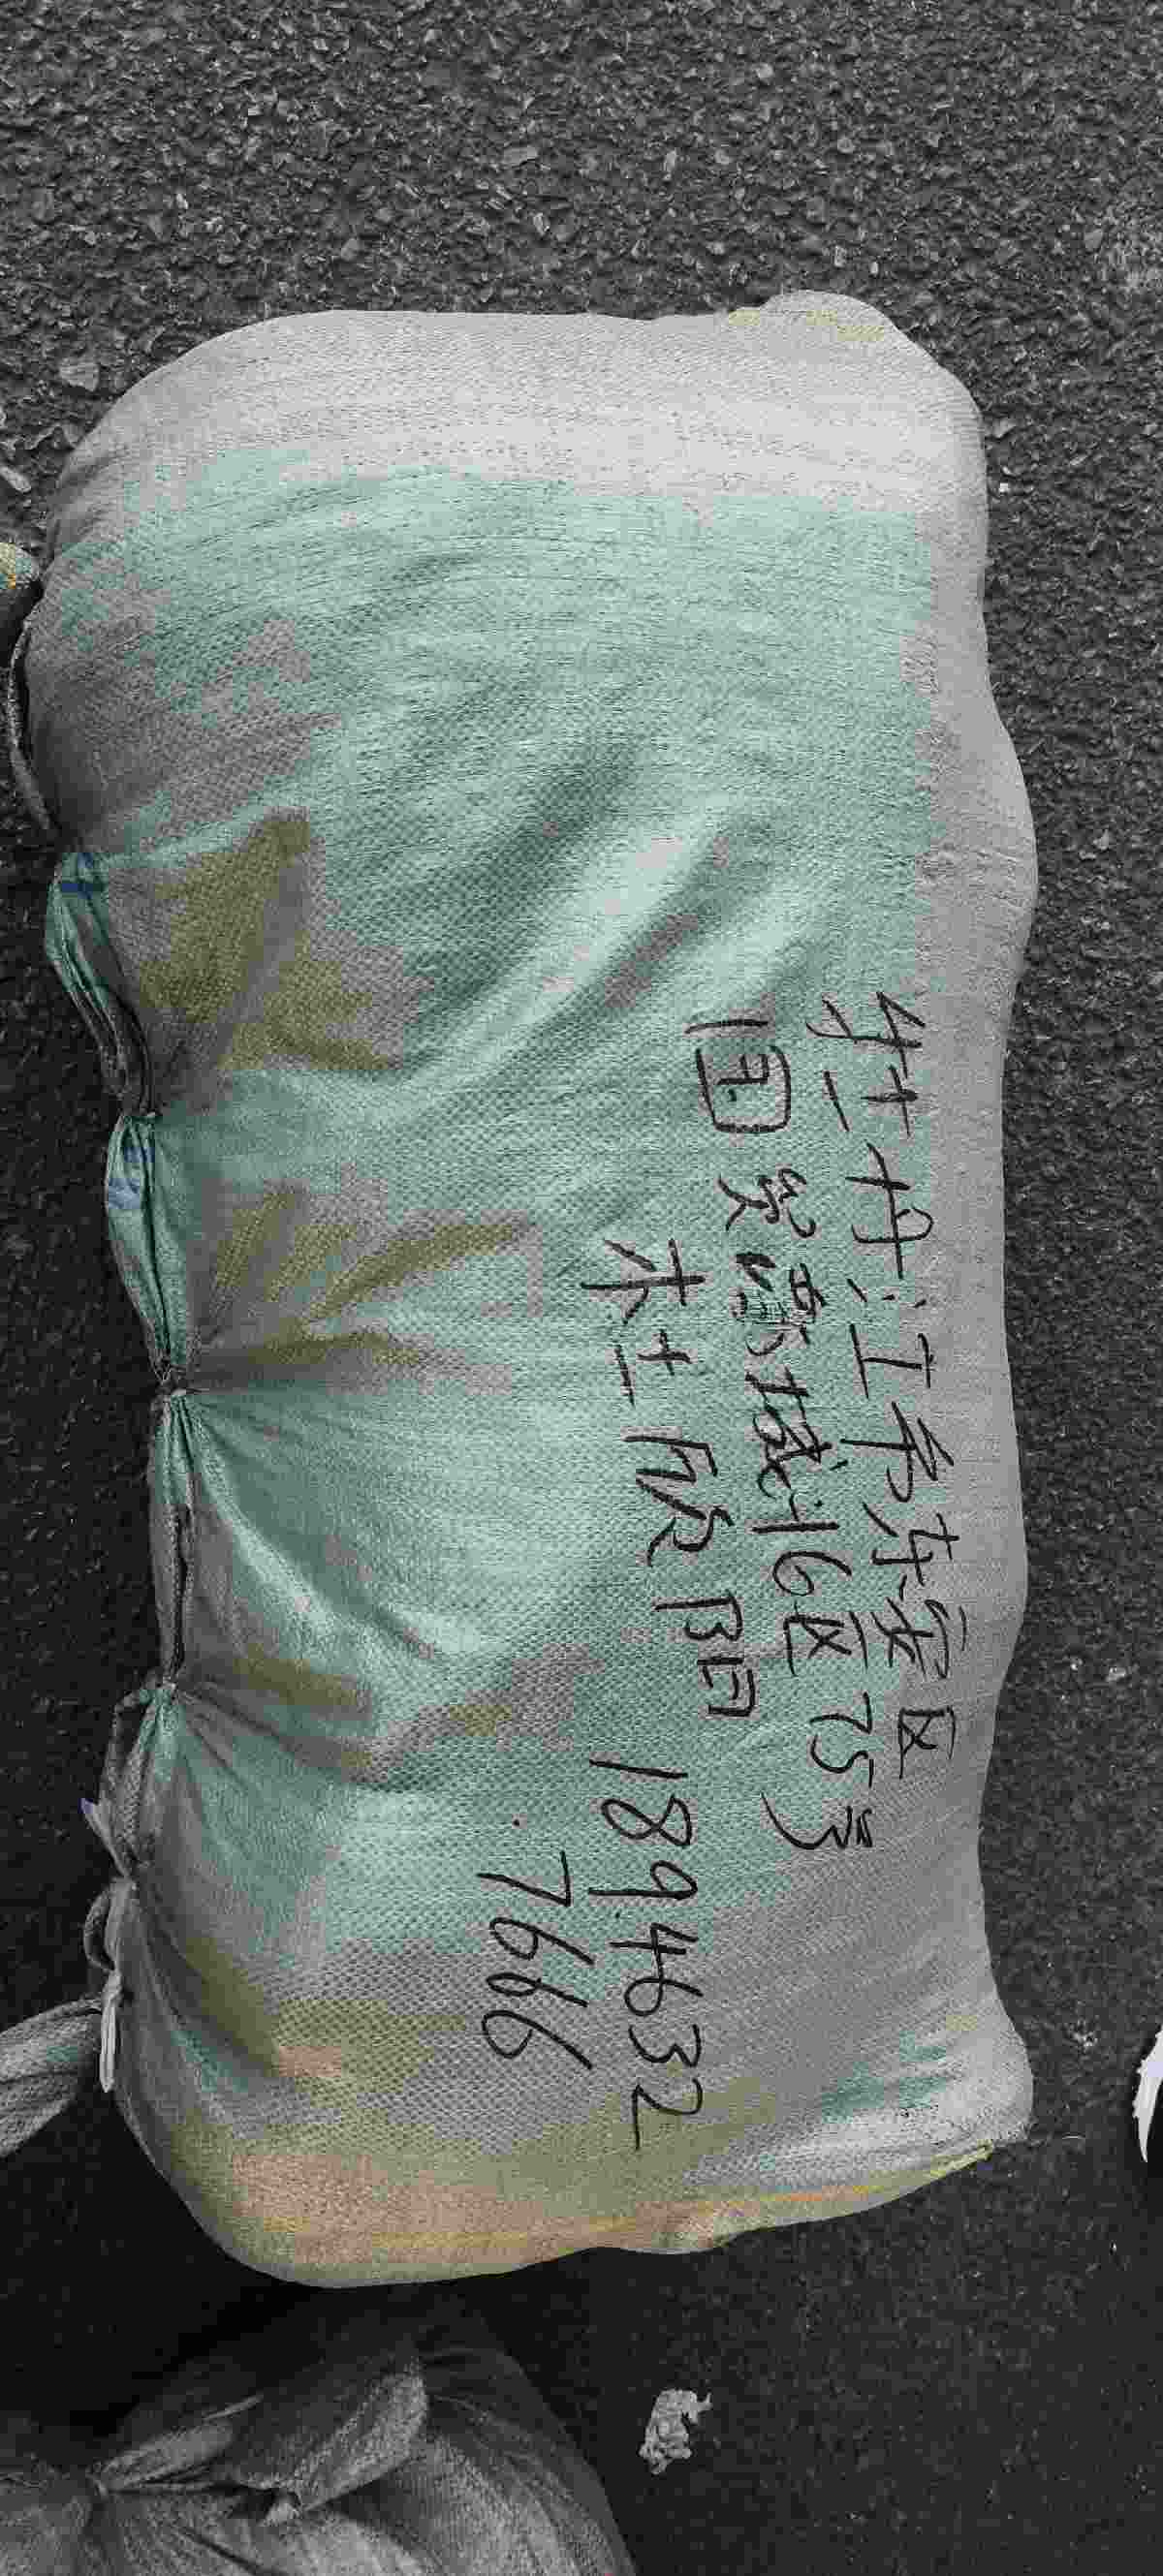 牡丹江市东安区
恒丰路城16区75号
杜殿阳 1894632
7666